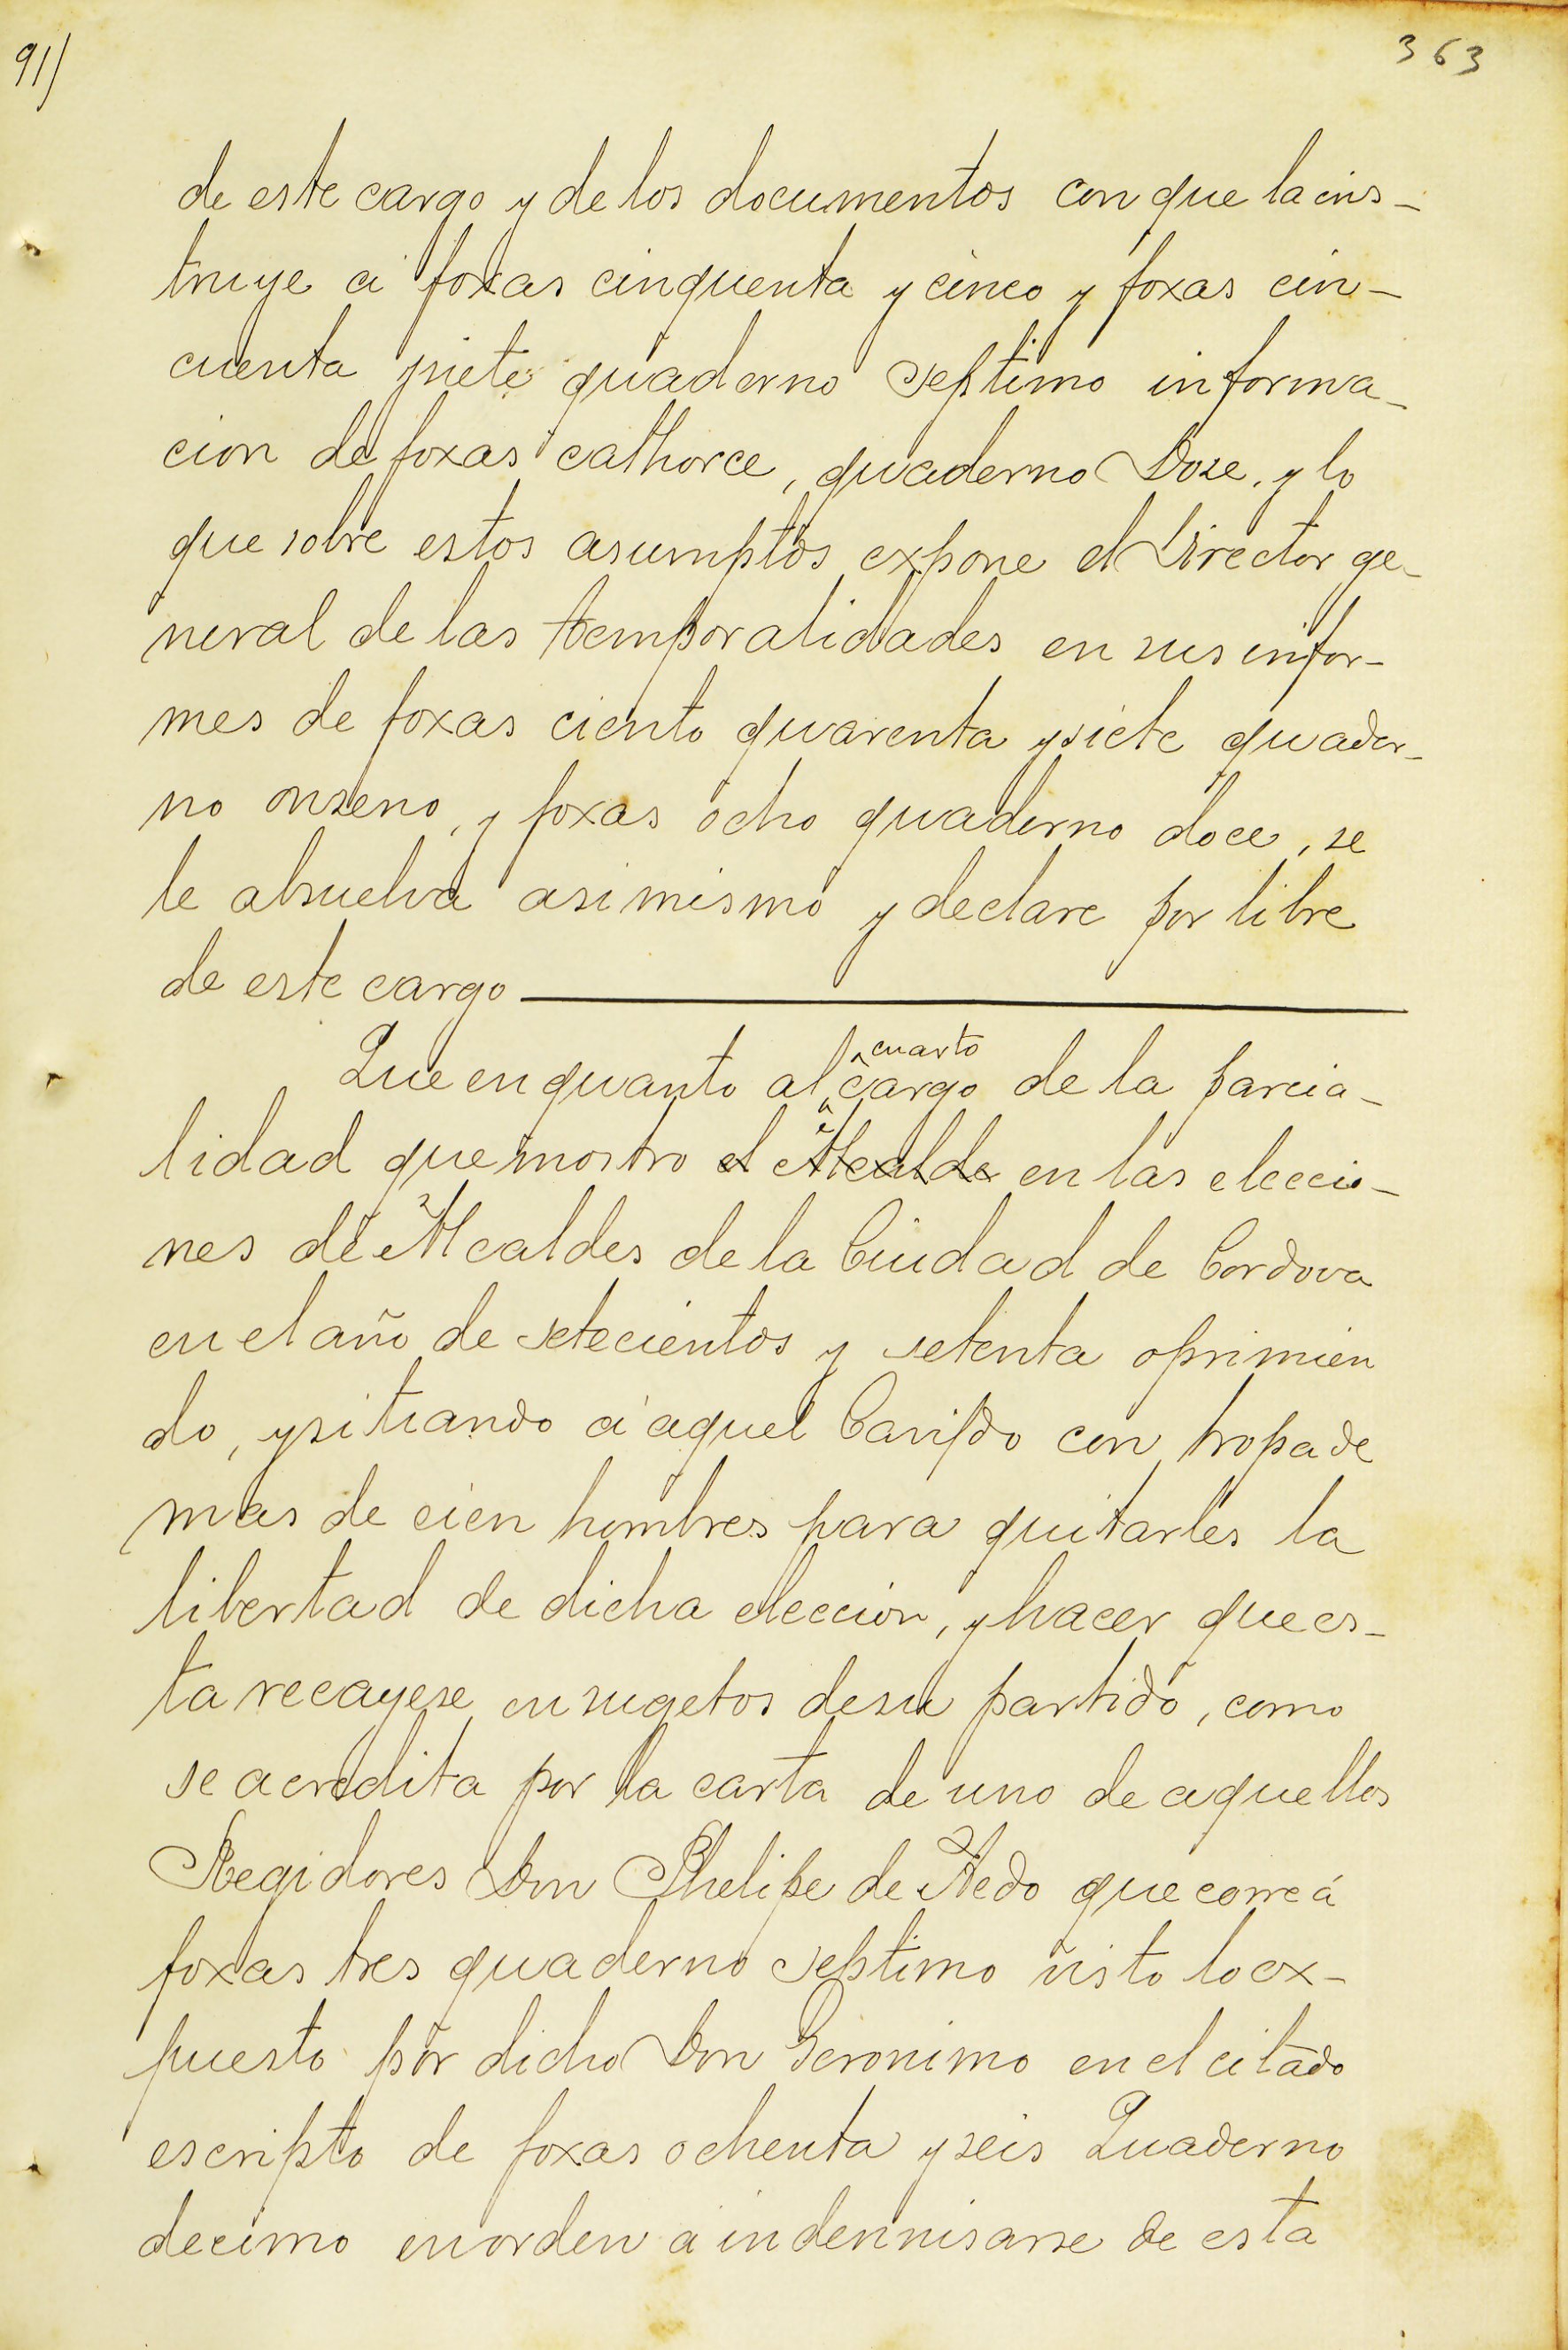 91)
363
de este cargo y de los documentos con que la ins-
truye á foxas cinquenta y cinco y foxas cin-
cuenta ysiete quaderno septimo informa-
cion de foxas cathorce, quaderno Doze, y lo
que sobre estos asumptos expone el Director ge-
neral de las temporalidades en sus infor-
mes de foxas ciento quarenta ysiete quader-
no onzeno, y foxas ocho quaderno doce, se
le absuelva asimismo y declare por libre
de este cargo
cuarto
Que en quanto al cargo de la parcia-
lidad que mostro el Alcalde en las eleccio-
nes de Alcaldes de la Ciudad de Cordova
en el año de setecientos y setenta oprimien
do, y sitiando á aquel Cavildo con tropa de
mas de cien hombres para quitarles la
libertad de dicha eleccion, y hacer que es-
ta recayese en sugetos de su partido, como
se acredita por la carta de uno de aquellos
Regidores Don Phelipe de Aedo que corre á
foxas tres quaderno septimo visto lo ex-
puesto por dicho Don Geronimo en el citado
escripto de foxas ochenta y seis Quaderno
decimo en orden a indennisarse de esta